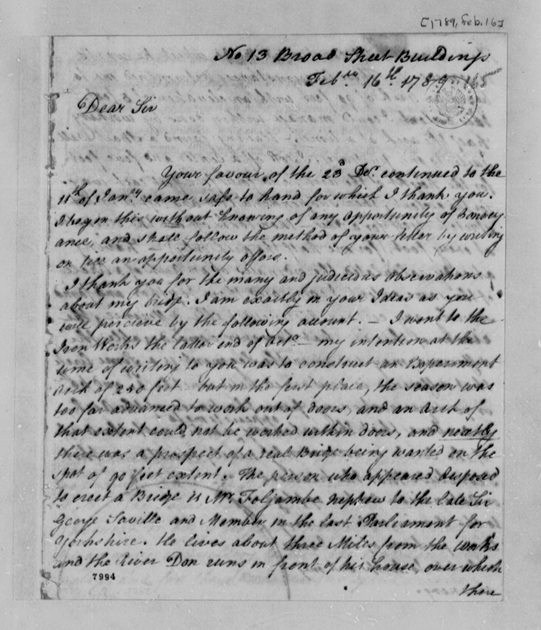 [1789, Feb. 16]
No 13 Broad Street Buildings
Feby 16th 1789
Dear Sir
Your favour of the 23d Dec. continued to the
11th of Jany came safe to hand for which I thank you.
I begin this without knowing of any opportunity of convey
ance, and shall follow the method of your letter by writing
on till an opportunity offers.
I thank you for the many and judicious observations
about my bridge. I am exactly in your Ideas as you
will perceive by the following account. — I went to the
Iron Works the latter end of Octr — my intention at the
time of writing to you was to construct an Experiment
arch of 250 feet but in the first place, the season was
too far advanced to work out of doors, and an arch of
that extent could not be worked within doors, and nextly
there was a prospect of a real Bridge being wanted on the
spot of 90 feet extent. The person who appeared disposed
to erect a Bridge is Mr Foljambe nephew to the late Sir
George Saville and Member in the last Parliament for
Yorkshire. He lives about three Miles from the works
and the River Don runs in front of his house, over which
there
7994